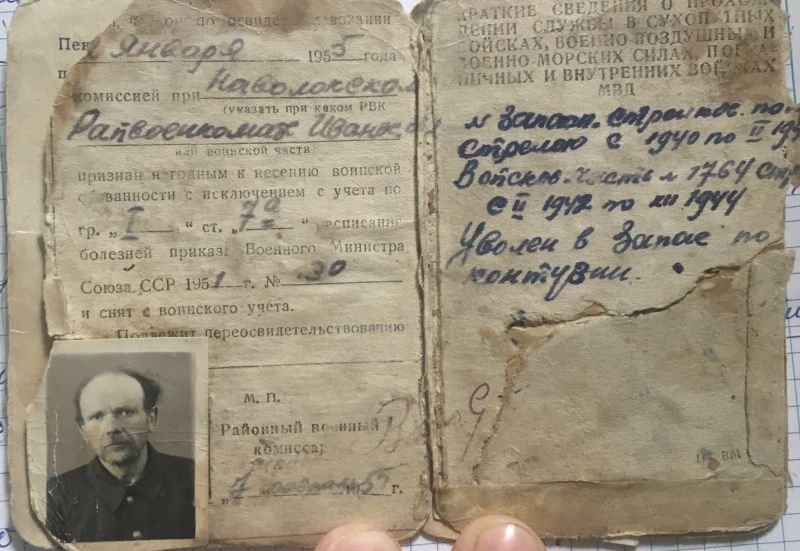 по освидетельствовании
Января 1955 года
комиссией при Наволокском
(указать при каком РВК
Райвоенкомат Иванов
или воинской части)
признан негодным к несению воинской
обязанности с исключением с учета по
гр. „ I “ ст. „ 7а “ расписание
болезней приказа Военного Министра
Союза ССР 1951 г. № 30
и снят с воинского учета.
Подлежит переосвидетельствованию
М. П.
Районный военный
комиссар
„7 1955 г.
КРАТКИЕ СВЕДЕНИЯ О ПРОХОЖ
ДЕНИИ СЛУЖБЫ В СУХОПУТНЫХ
ВОЙСКАХ, ВОЕННО-ВОЗДУШНЫХ И
ВОЕННО-МОРСКИХ СИЛАХ, ПОГРА
НИЧНЫХ И ВНУТРЕННИХ ВОЙСКАХ
МВД
Запасн. по
с 1940 по II
Войсков. часть № 1764
с II 1942 по XII 1944
Уволен в Запас по
контузии.
ВМ